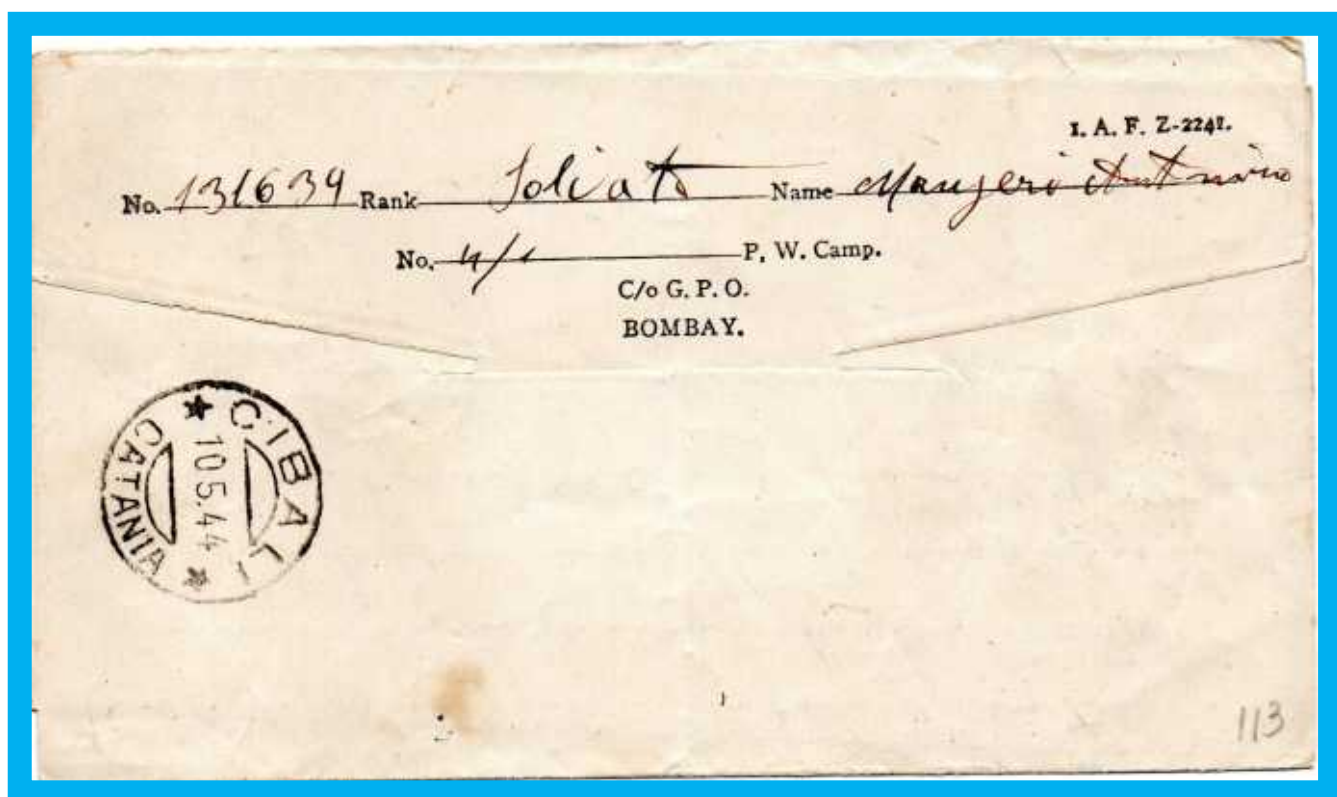 I. A. F. Z-2241.
No. 131639 Rank Soldato Name Maugeri Antonino
No. 4/1 P. W. Camp.
C/o G. P. O.
BOMBAY.
CIBALI
10.5.44
CATANIA
113